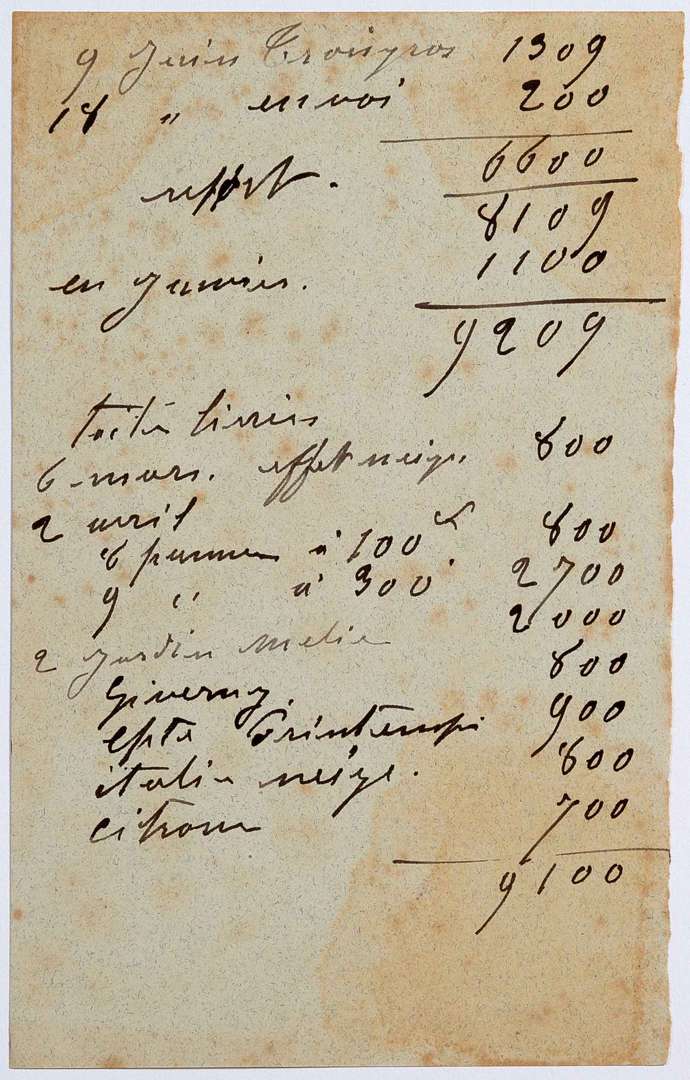 9 Juin Troisgros 1309
18 " envoi 200
6600
report. 8109
en Janvier. 1100
9209
livrées
6 mars. effet neige 800
2 avril
8 panneaux à 100 f. 800
9 " à 300 2700
2 Jardin 2000
Giverny. 800
epte Printemps 900
italie neige. 800
citrons 700
9100